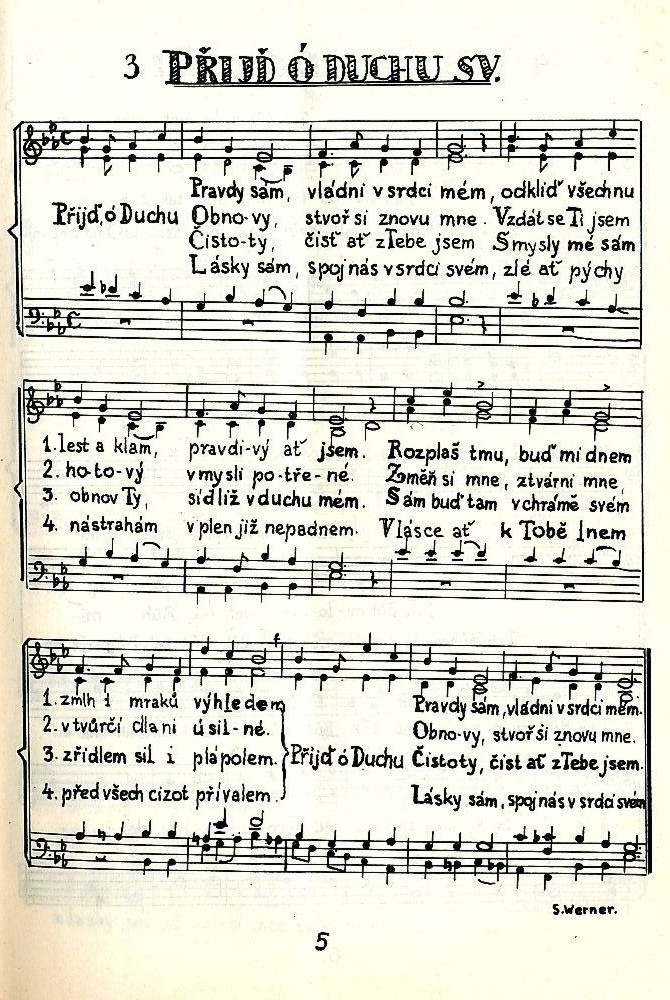 3 PŘIJĎ Ó DUCHU SV.
Pravdy sám, vládni v srdci mém, odkliď všechnu
Přijď, ó Duchu Obno-vy, stvoř si znovu mne. Vzdát se Ti jsem
Čisto-ty, čisť ať z Tebe jsem Smysly mé sám
Lásky sám, spoj nás v srdci svém, zlé ať pýchy
1. lest a klam, pravdi-vý ať jsem. Rozplaš tmu, buď mi dnem
2. ho-to-vý v mysli po-tře-né. Změň si mne, ztvární mne
3. obnov Ty, sídlíž v duchu mém. Sám buď tam v chrámě svém
4. nástrahám v plen již nepadnem. V lásce ať k Tobě lnem
1. z mlh i mraků výhledem
2. v tvůrčí dlani úsil-né.
3. zřídlem sil i plápolem.
4. před všech cizot přívalem.
Přijď ó Duchu
Pravdy sám, vládni v srdci mém.
Obno-vy, stvoř si znovu mne.
Čistoty, čist ať z Tebe jsem.
Lásky sám, spoj nás v srdci svém
S. Werner.
5